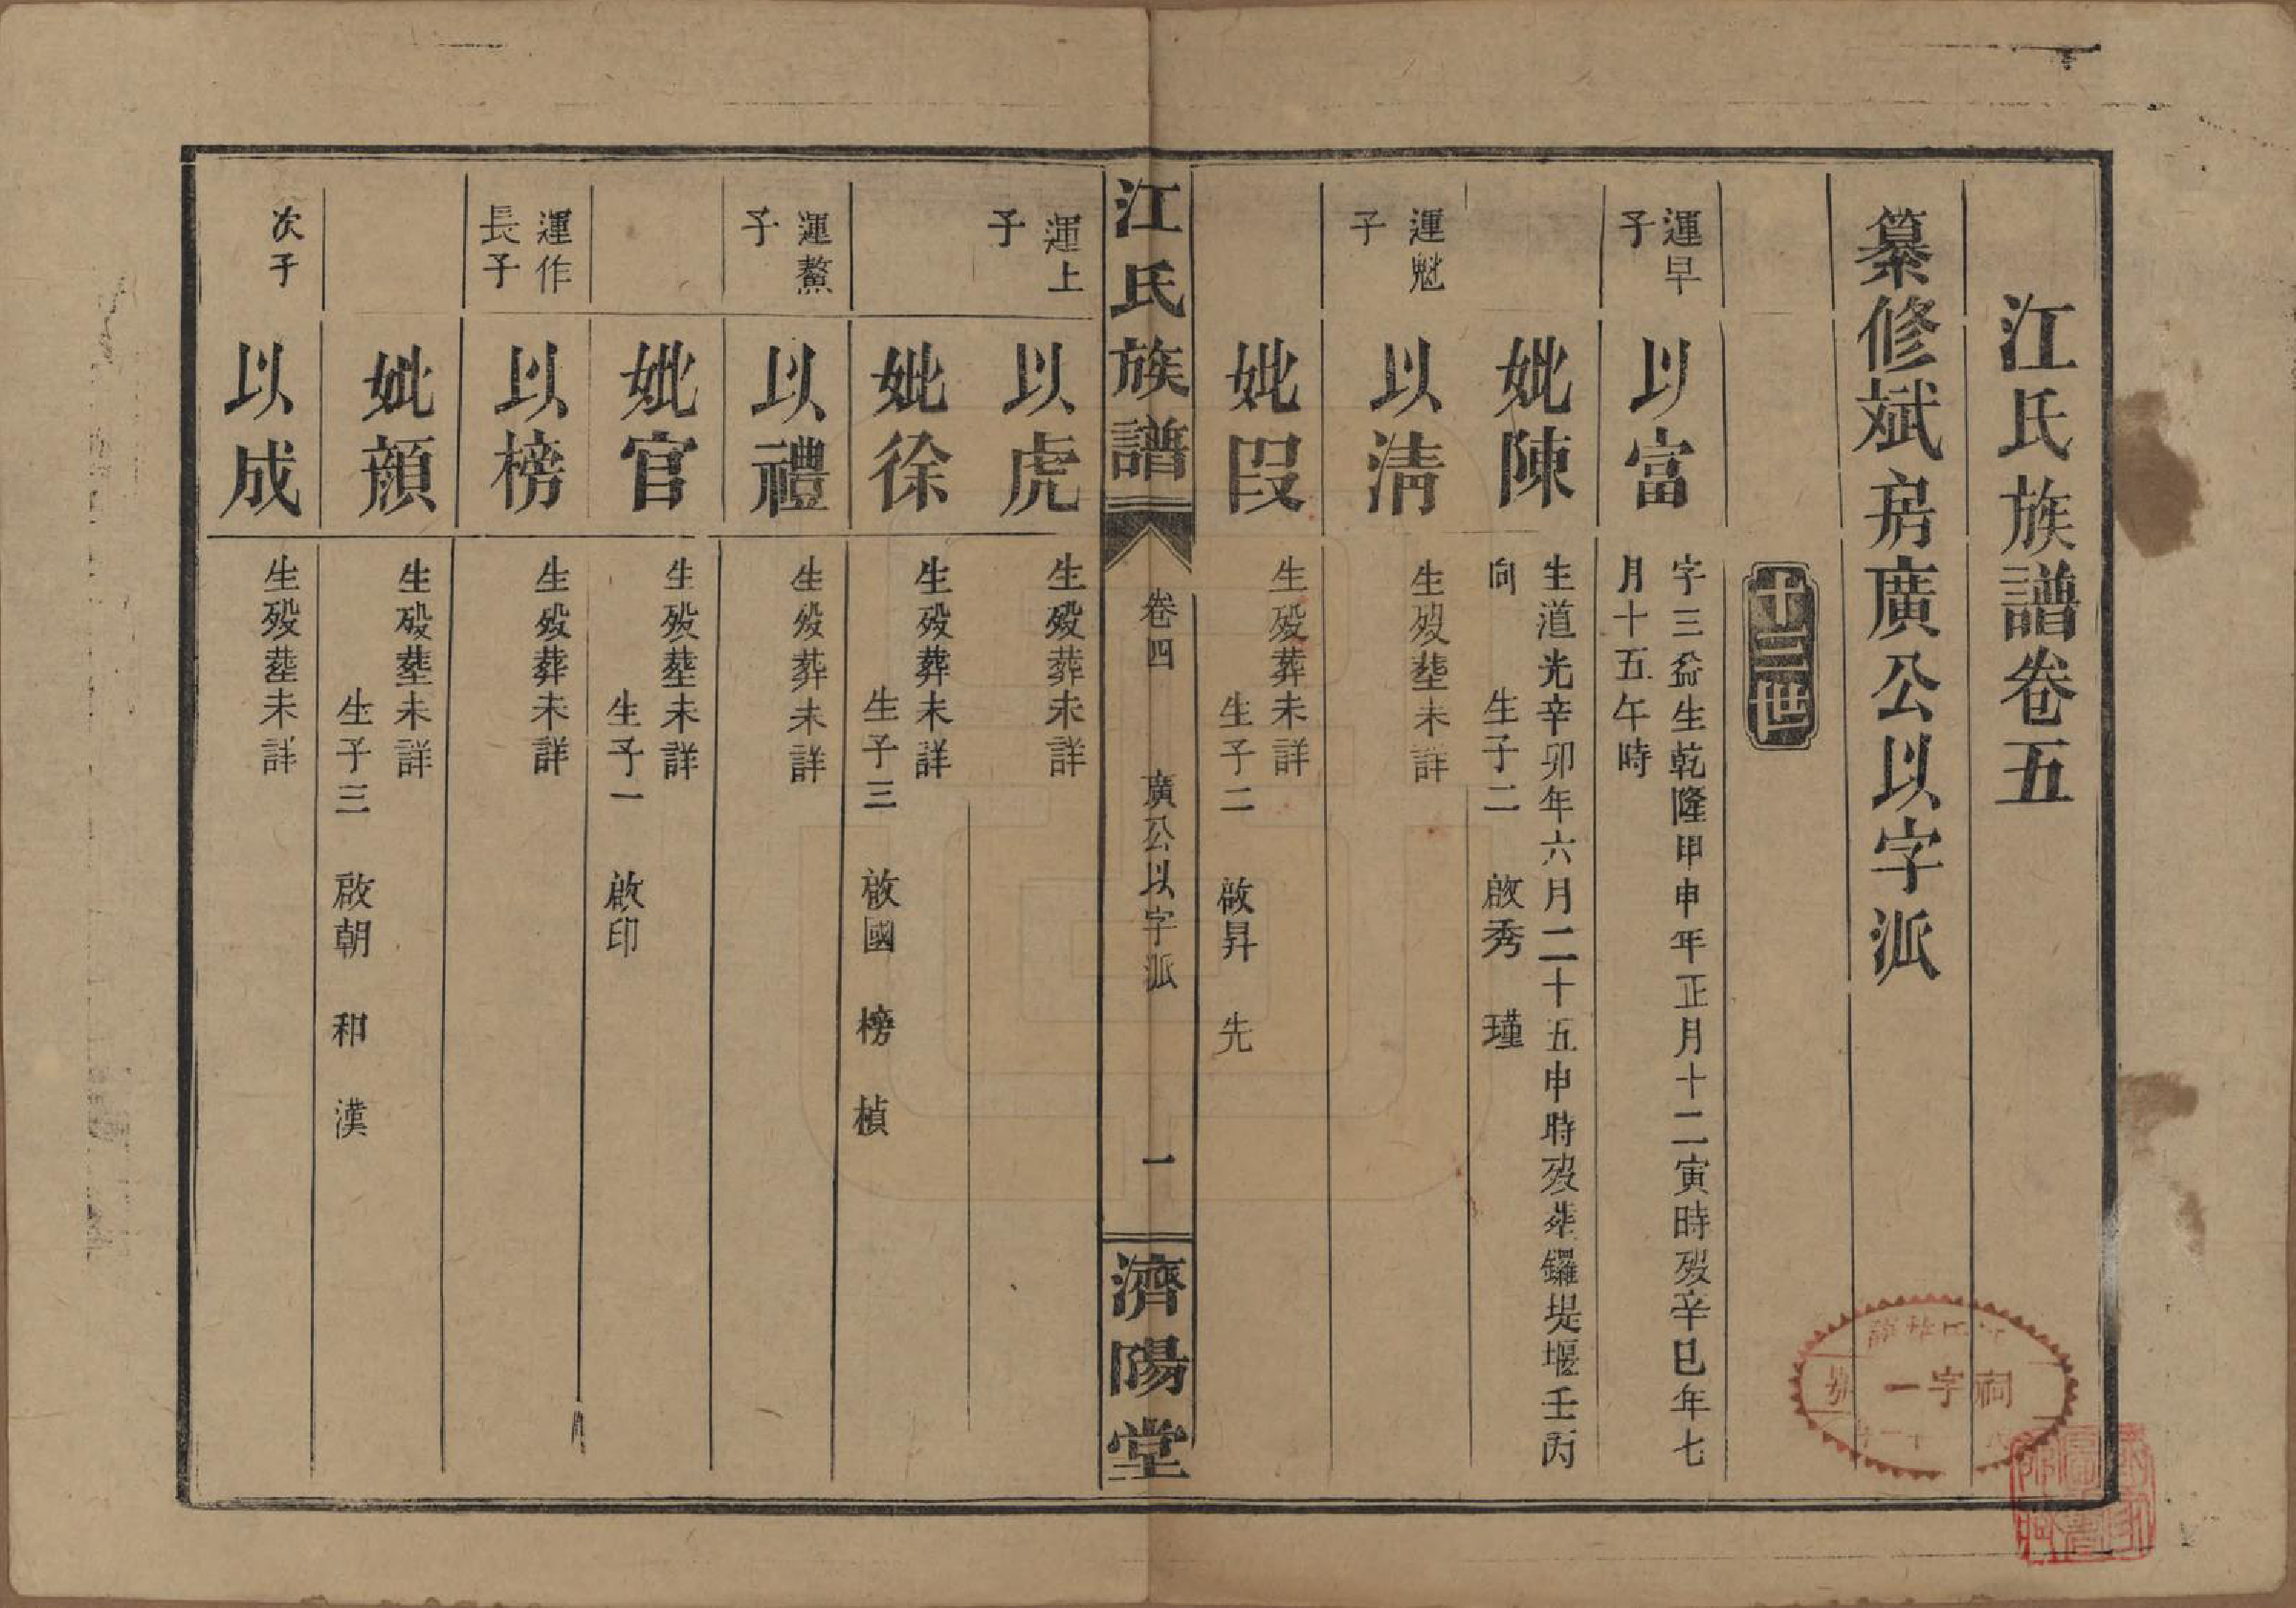 江氏族譜卷五
纂修斌房廣公以字派
十三世
運早
子
以富
字三益生乾隆甲申年正月十二寅時歿辛巳年七
月十五午時
妣陳
生道光辛卯年六月二十五申時歿葬鑼堤堰壬丙
向 生子二 啟秀 瑾
運魁
子
以淸
生歿塟未詳
妣段
生歿葬未詳
生子二 啟昇 先
江氏族譜
卷四 廣公以字派 一
濟陽堂
運上
子
以虎
生歿葬未詳
妣徐
生歿葬未詳
生子三 啟國 榜 楨
運鰲
子
以禮
生歿葬未詳
妣官
生歿塟未詳
生子一 啟印
運作
長子
以榜
生歿葬未詳
妣顏
生歿塟未詳
生子三 啟朝 和 漢
次子
以成
生歿塟未詳
祠字一號